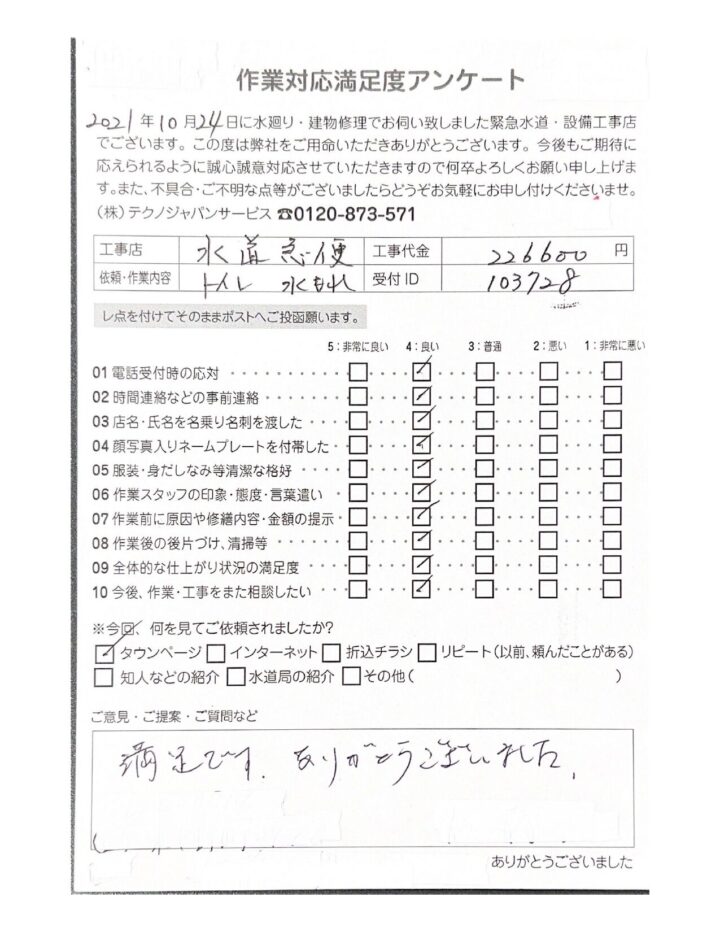 作業対応満足度アンケート
2021年10月24日に水廻り・建物修理でお伺い致しました緊急水道・設備工事店
でございます。この度は弊社をご用命いただきありがとうございます。今後もご期待に
応えられるように誠心誠意対応させていただきますので何卒よろしくお願い申し上げま
す。また、不具合・ご不明な点等がございましたらどうぞお気軽にお申し付けくださいませ。
(株)テクノジャパンサービス ☎0120-873-571
工事店 水道急便 工事代金 226600 円
依頼・作業内容 トイレ 水もれ 受付ID 103728
レ点を付けてそのままポストへご投函願います。
5:非常に良い 4:良い 3:普通 2:悪い 1:非常に悪い
01 電話受付時の応対
02 時間連絡などの事前連絡
03 店名・氏名を名乗り名刺を渡した
04 顔写真入りネームプレートを付帯した
05 服装・身だしなみ等清潔な格好
06 作業スタッフの印象・態度・言葉遣い
07 作業前に原因や修繕内容・金額の提示
08 作業後の後片づけ、清掃等
09 全体的な仕上がり状況の満足度
10 今後、作業・工事をまた相談したい
※今回、何を見てご依頼されましたか?
タウンページ インターネット 折込チラシ リピート(以前、頼んだことがある)
知人などの紹介 水道局の紹介 その他( )
ご意見・ご提案・ご質問など
満足です。ありがとうございました。
ありがとうございました